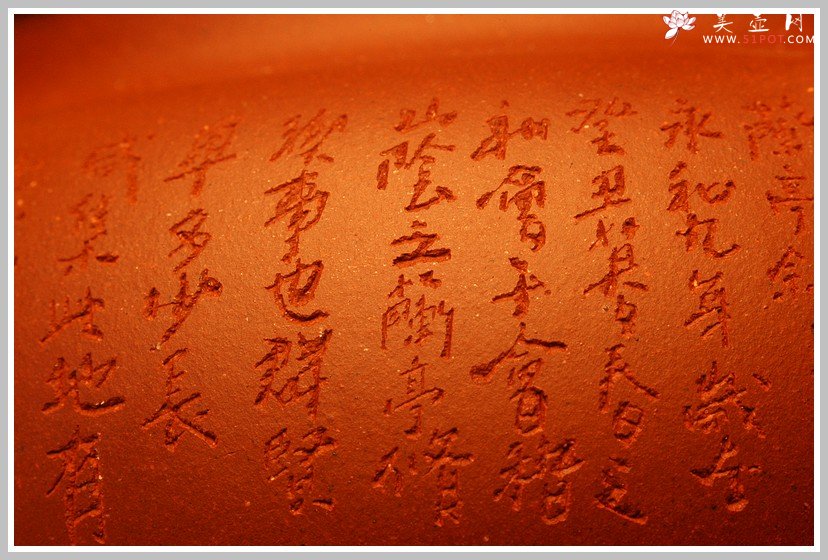 美壶网
WWW.51POT.COM
蘭亭
永和九年歲在
癸丑暮春之
初會于會稽
山陰之蘭亭修
禊事也群賢
畢至少長
咸集此地有